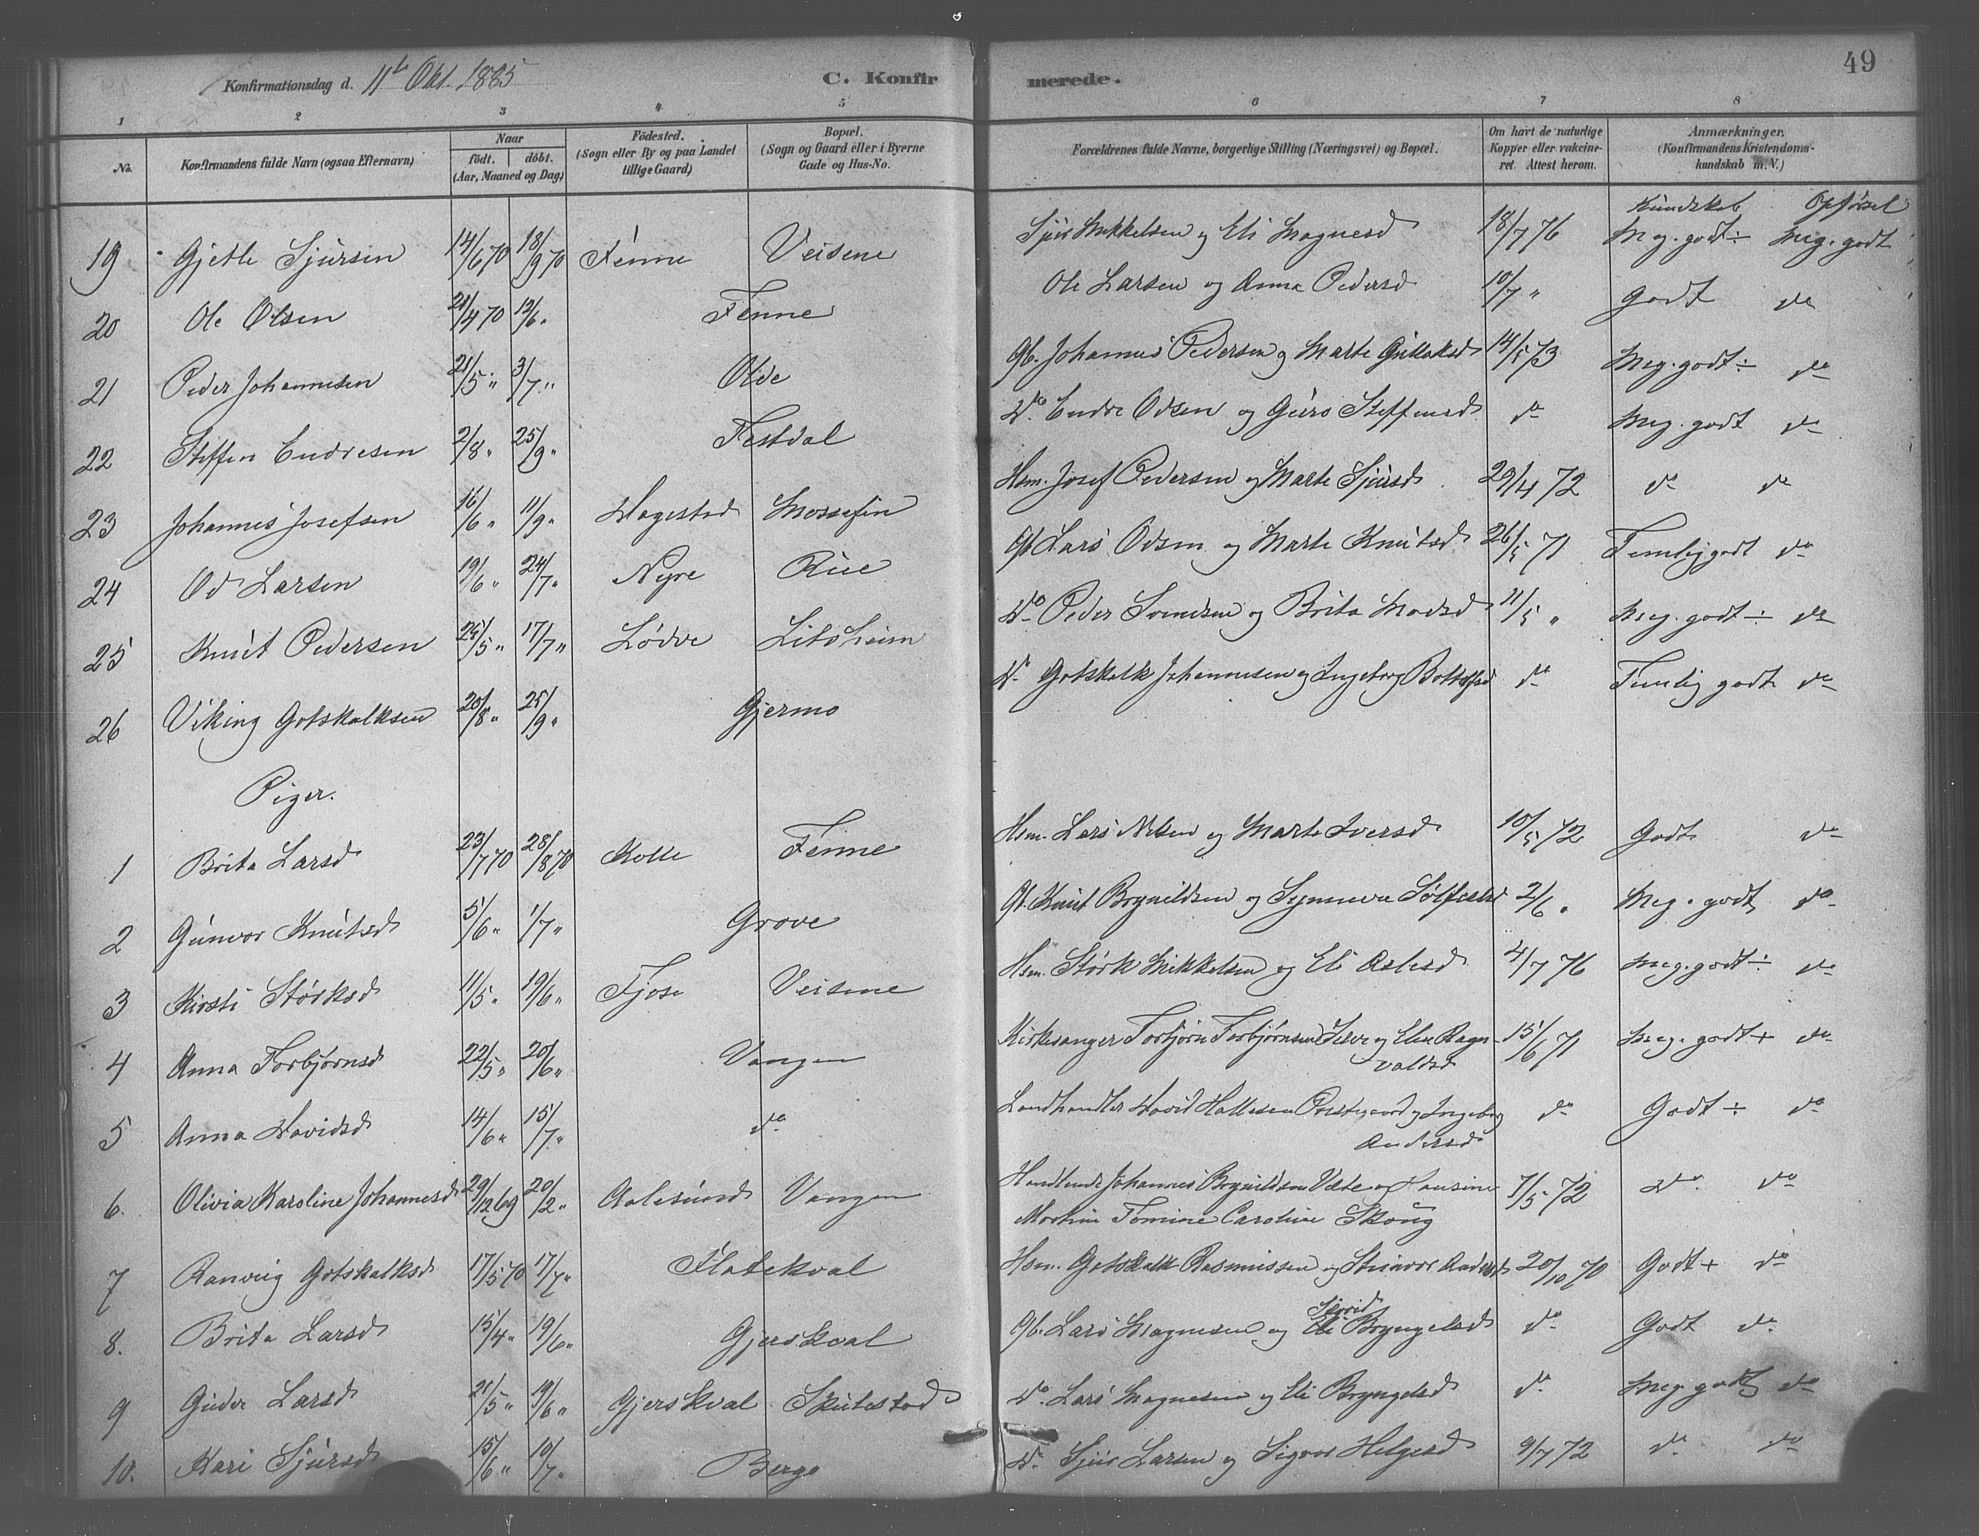 49
Konfirmationsdag d. 11t Okt. 1885 C. Konfirmerede.
1 2 3 4 5 6 7 8
No. Konfirmandens fulde Navn (ogsaa Efternavn) Naar födt. döbt. (Aar, Maaned og Dag) Födested. (Sogn eller By og paa Landet tillige Gaard) Bopæl. (Sogn og Gaard eller i Byerne Gade og Hus-No. Forældrenes fulde Navne, borgerlige Stilling (Næringsvei) og Bopæl. Om havt de naturlige Kopper eller vakcineret. Attest herom. Anmærkninger. (Konfirmandens Kristendomskundskab m. V.)
Kundskab Opførsel
19 Gjetle Sjursen 14/6 70 18/9 70 Fenne Veisene Sjur Mikkelsen og Eli Magnesd 18/7 76 Meg. godt ÷ Meg. godt
20 Ole Olsen 21/4 70 12/6 " Fenne Ole Larsen og Anna Pedersd 10/7 " Godt do
21 Peder Johannesen 21/5 " 3/7 " Olde Gb. Johannes Pedersen og Marte 14/5 73 Meg. godt ÷ do
22 Steffen Endresen 2/8 " 25/9 " Festdal Do Endre Odsen og Guro Steffensd do Meg. godt do
23 Johannes Josefsen 16/6 " 11/9 " Hagestad Mossefin Hsm. Josef Pedersen og Marte Sjursd 29/4 72 do do
24 Od Larsen 19/6 " 24/7 " Nyre Rue Gb Lars Odsen og Marte Knutsd 26/5 71 Temlig godt do
25 Knut Pedersen 25/5 " 17/7 " Lødve Lidsheim Do Peder Svendsen og Brita Madsd 11/5 " Meg. godt ÷ do
26 Viking Gotskalksen 20/8 " 25/9 " Gjermo Do Gotskalk Johannesen og Ingeborg Botolfsd do Temlig godt do
Piger.
1 Brita Larsd 23/7 70 28/8 70 Kolle Fenne Hsm. Lars Nilsen og Marte Iversd 10/5 72 Godt do
2 Gunvor Knutsd 5/6 " 1/7 " Grove Gb. Knut Brynildsen og Synneve 2/6 " Meg. godt do
3 Kirsti Størksd 11/5 " 19/6 " Tjose Veisene Hsm. Størk Mikkelsen og Eli Aslesd 4/7 76 Meg. godt ÷ do
4 Anna Torbjørnsd 22/5 " 20/6 " Vangen Kirkesanger Torbjørn Torbjørnsen og Elin Ragn- 15/6 71 Meg. godt + do
valdsd
5 Anna Davidsd 14/6 " 15/7 " do Landhandler David Hallesen Prestegaard og Ingeborg do Godt ÷ do
Andersd
6. Olivia Karoline Johannesd 29/12 69 20/2 " Aalesund Vangen Handlende Johannes Brynildsen Væte og Hansine 7/5 72 Do do
Martine Tomine Caroline Skoug
7 Ranveig Gotskalksd 17/5 70 17/7 " Flatekval Hsm. Gotskalk Rasmussen og Steinvor Andersd 20/10 70 Godt + do
8. Brita Larsd 15/4 " 19/6 " Gjerskval Gb. Lars Magnesen og Eli Bryngelsd do Godt do
9 Gudve Larsd 21/5 " 19/6 " Gjerskval Skutestad Do Lars Magnesen og Eli Bryngelsd do Meg godt do
10. Kari Sjursd 15/6 " 10/7 " Berge Do Sjur Larsen og Sigvor Helgesd 9/7 72 do do